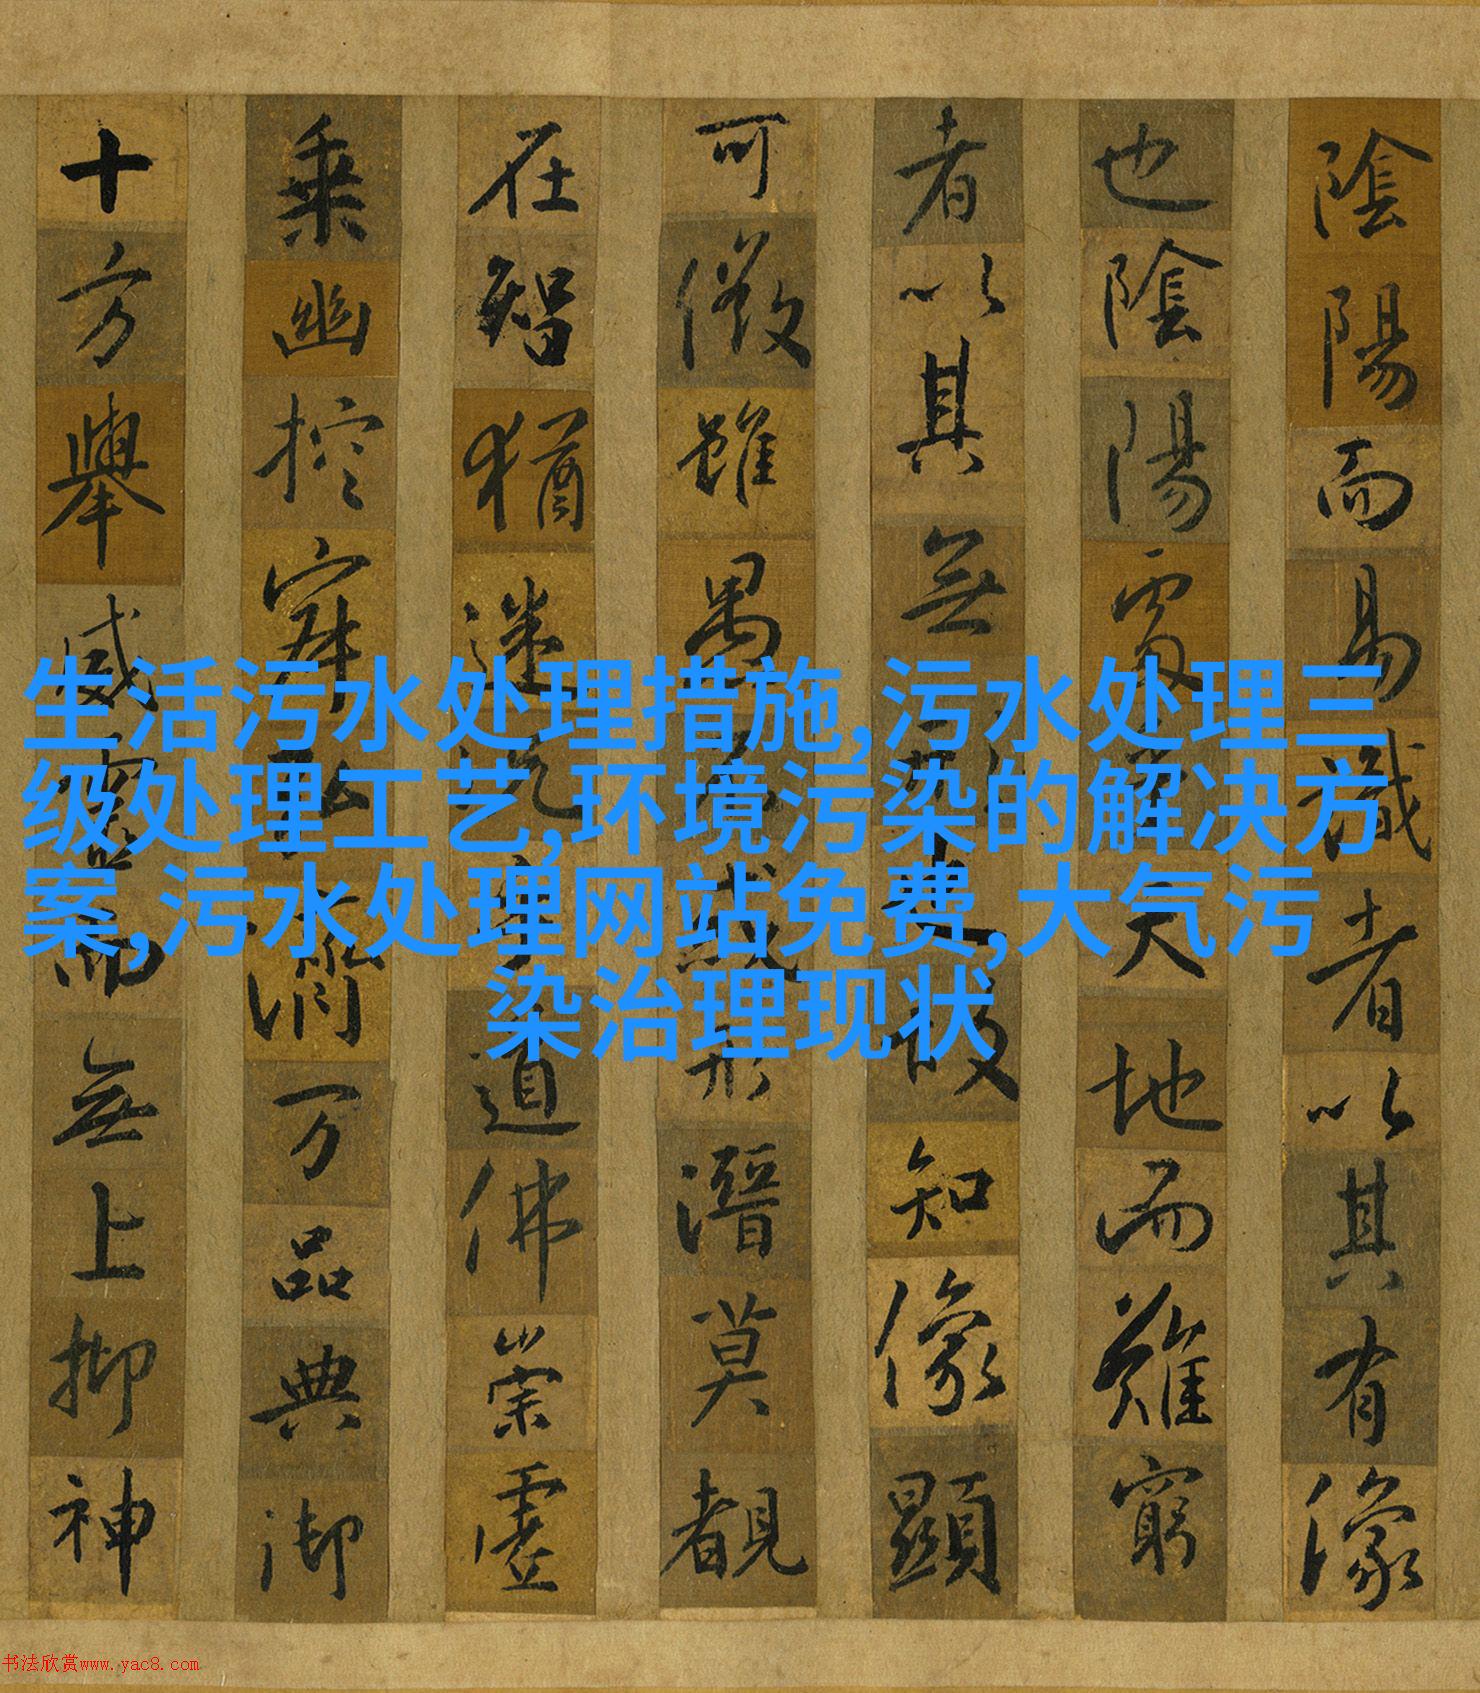 陰陽而易識者以其有像
也陰陽處乎天地而難窮
者以其無形也故知像顯
可徵雖愚不惑形潛莫覩
在智猶迷況乎道佛崇虛
乘幽控寂弘濟万品典御
十方舉威靈而無上抑神
生活污水处理措施,污水处理三
级处理工艺,环境污染的解决方
案,污水处理网站免费,大气污
染治理现状
书法欣赏www.yac8.com